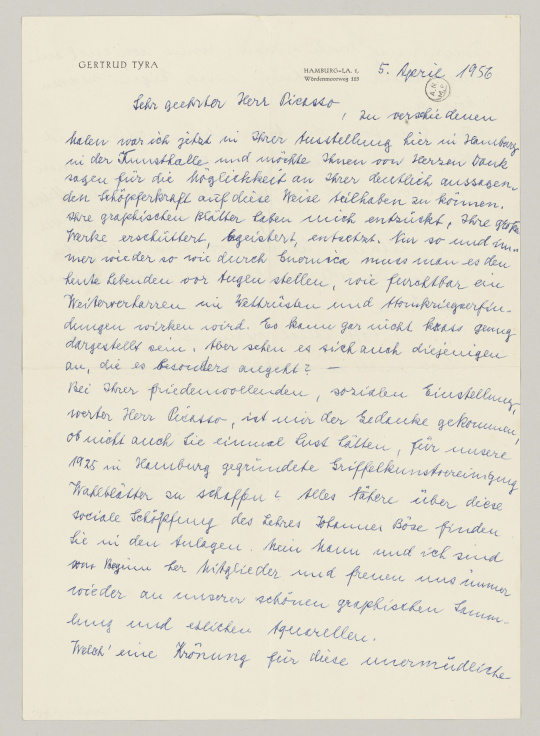 GERTRUD TYRA
HAMBURG-LA. 1,
Wördenmoorweg 103
5. April 1956
Sehr geehrter Herr Picasso,
zu verschiedenen
Malen war ich jetzt in Ihrer Ausstellung hier in Hamburg
in der Kunsthalle und möchte Ihnen von Herzen Dank
sagen für die Möglichkeit an Ihrer deutlich aussagen-
den Schöpferkraft auf diese Weise teilhaben zu können.
Ihre graphischen Blätter haben mich entzückt, Ihre großen
Werke erschüttert, begeistert, entsetzt. Nur so und im-
mer wieder so wie durch Guernica muss man es den
heute Lebenden vor Augen stellen, wie furchtbar ein
Weiterverharren im Wettrüsten und Atomkriegserfin-
dungen wirken wird. Es kann gar nicht krass genug
dargestellt sein. Aber sehen es sich auch diejenigen
an, die es besonders angeht? —
Bei Ihrer friedenwollenden, sozialen Einstellung,
werter Herr Picasso, ist mir der Gedanke gekommen,
ob nicht auch Sie einmal Lust hätten, für unsere
1925 in Hamburg gegründete Griffelkunstvereinigung
Wahlblätter zu schaffen? Alles Nähere über diese
soziale Schöpfung des Lehrers Johannes Böse finden
Sie in den Anlagen. Mein Mann und ich sind
von Beginn her Mitglieder und freuen uns immer
wieder an unserer schönen graphischen Samm-
lung und etlichen Aquarellen.
Welch' eine Krönung für diese unermüdliche